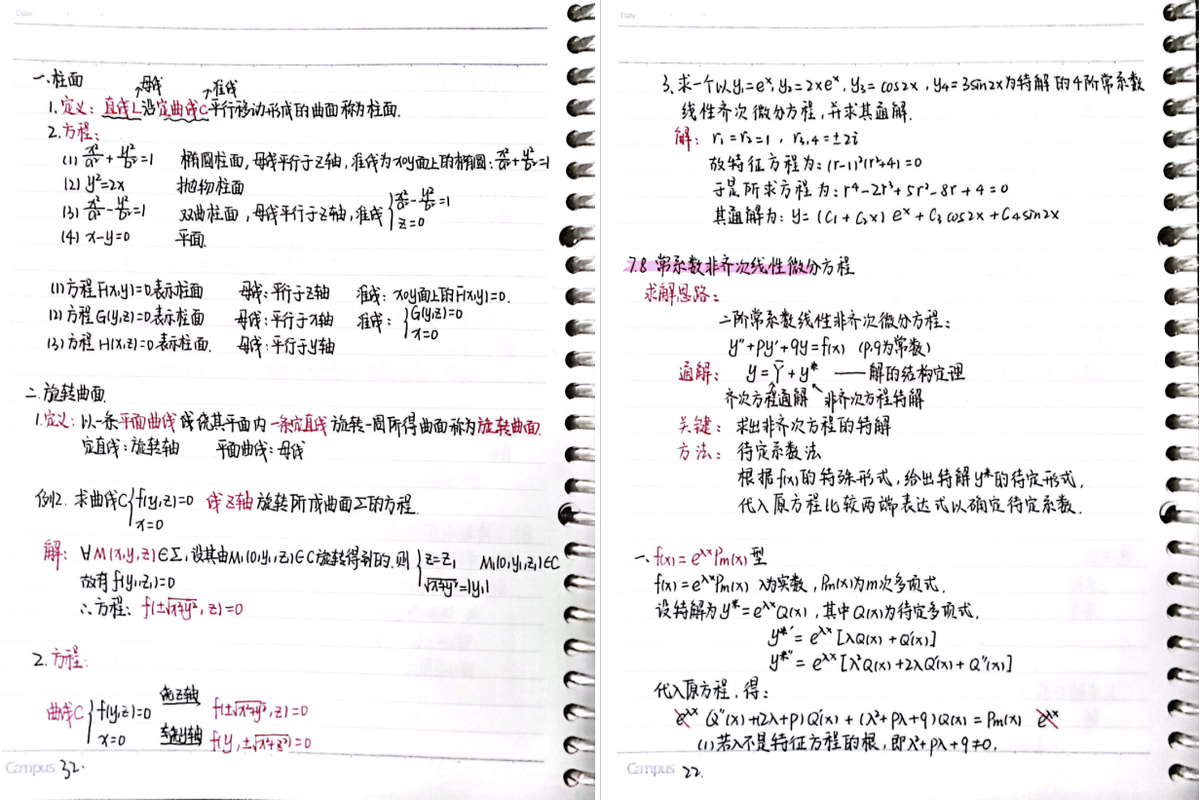 Date
一.柱面
母线 准线
1.定义：直线L沿定曲线C平行移动形成的曲面称为柱面.
2.方程：
(1) x²/a² + y²/b² = 1 椭圆柱面，母线平行于z轴，准线为xoy面上的椭圆：x²/a² + y²/b² = 1
(2) y²=2x 抛物柱面
(3) x²/a² - y²/b² = 1 双曲柱面，母线平行于z轴，准线 { x²/a² - y²/b² = 1
z=0
(4) x-y=0 平面.
(1)方程F(x,y)=0表示柱面 母线：平行于z轴 准线：xoy面上的F(x,y)=0.
(2)方程G(y,z)=0表示柱面 母线：平行于x轴 准线： { G(y,z)=0
x=0
(3)方程H(x,z)=0表示柱面. 母线：平行于y轴
二.旋转曲面.
1.定义：以一条平面曲线绕其平面内一条定直线旋转一周所得曲面称为旋转曲面.
定直线：旋转轴 平面曲线：母线
例2. 求曲线C { f(y,z)=0 绕z轴旋转所成曲面Σ的方程.
x=0
解：∀M(x,y,z)∈Σ,设其由M₁(0,y₁,z₁)∈C旋转得到的.则 { z=z₁ M₁(0,y₁,z₁)∈C
√x²+y²=|y₁|
故有f(y₁,z₁)=0
∴方程：f(±√x²+y², z)=0
2.方程：
曲线C { f(y,z)=0 绕z轴 f(±√x²+y², z)=0
x=0 绕y轴 f(y, ±√x²+z²)=0
Campus 32.
Date
3.求一个以y₁=eˣ, y₂=2xeˣ, y₃=cos2x, y₄=3sin2x为特解的4阶常系数
线性齐次微分方程,并求其通解.
解：r₁=r₂=1, r₃,₄=±2i
故特征方程为：(r-1)²(r²+4)=0
于是所求方程为：r⁴-2r³+5r²-8r+4=0
其通解为：y=(C₁+C₂x)eˣ+C₃cos2x+C₄sin2x
7.8 常系数非齐次线性微分方程
求解思路：
二阶常系数线性非齐次微分方程：
y"+py'+qy=f(x) (p,q为常数)
通解： y=Y+y* ——解的结构定理
齐次方程通解 非齐次方程特解
关键：求出非齐次方程的特解
方法：待定系数法
根据f(x)的特殊形式,给出特解y*的待定形式,
代入原方程比较两端表达式以确定待定系数.
一.f(x)=e^λx Pm(x)型
f(x)=e^λx Pm(x) λ为实数,Pm(x)为m次多项式.
设特解为y*=e^λx Q(x),其中Q(x)为待定多项式.
y*'=e^λx[λQ(x)+Q'(x)]
y*"=e^λx[λ²Q(x)+2λQ'(x)+Q"(x)]
代入原方程,得：
e^λx (Q"(x)+(2λ+p)Q'(x)+(λ²+pλ+q)Q(x)=Pm(x) e^λx
(1)若λ不是特征方程的根,即λ²+pλ+q≠0,
Campus 22.